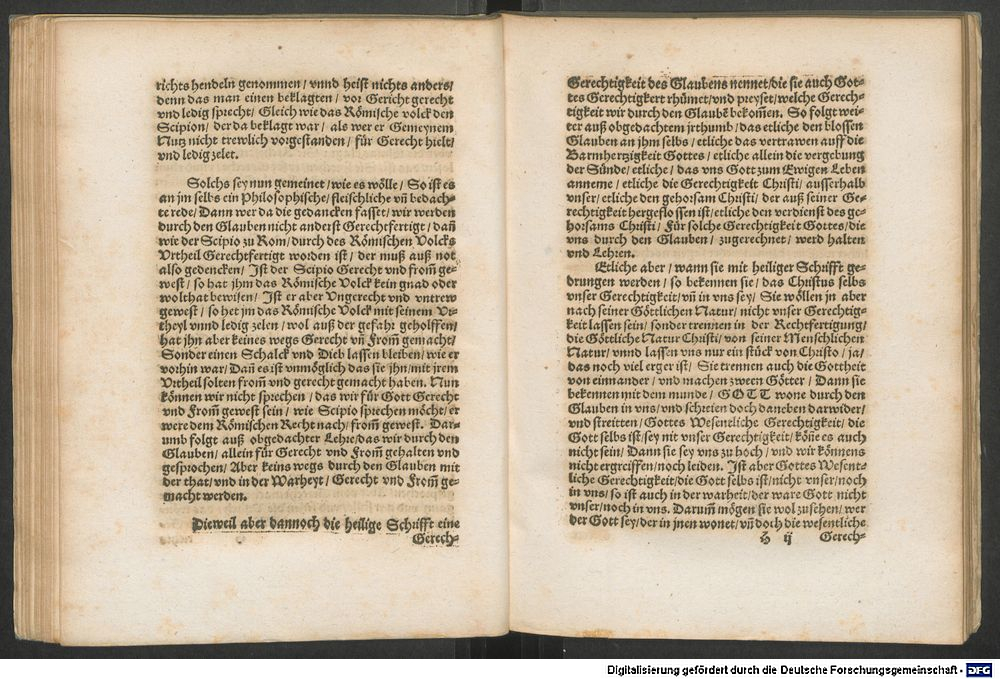 richts hendeln genommen / vnnd heist nichts anders /
denn das man einen beklagten / vor Gericht gerecht
vnd ledig sprecht / Gleich wie das Römische volck den
Scipion / der da beklagt war / als wer er Gemeynem
Nutz nicht trewlich vorgestanden / für Gerecht hielt /
vnd ledig zelet.
Solchs sey nun gemeinet / wie es wölle / So ist es
an jm selbs ein Philosophische / fleischliche vn̄ bedach-
te rede / Dann wer da die gedancken fasset / wir werden
durch den Glauben nicht anderst Gerechtfertigt / dan̄
wie der Scipio zu Rom / durch des Römischen Volcks
Vrtheil Gerechtfertigt worden ist / der muß auß not
also gedencken / Ist der Scipio Gerecht vnd from̄ ge-
west / so hat jhm das Römische Volck kein gnad oder
wolthat bewisen / Ist er aber Vngerecht vnd vntrew
gewest / so het jm das Römische Volck mit seinem Vr-
theyl vnnd ledig zelen / wol auß der gefahr geholffen /
hat jhn aber keines wegs Gerecht vn̄ From̄ gemacht /
Sonder einen Schalck vnd Dieb lassen bleiben / wie er
vorhin war / Dan̄ es ist vnmöglich das sie jhn / mit jrem
Vrtheil solten from̄ vnd gerecht gemacht haben. Nun
können wir nicht sprechen / das wir für Gott Gerecht
vnd From̄ gewest sein / wie Scipio sprechen möcht / er
were dem Römischen Recht nach / from̄ gewest. Dar-
umb folgt auß obgedachter Lehre / das wir durch den
Glauben / allein für Gerecht vnd From̄ gehalten vnd
gesprochen / Aber keins wegs durch den Glauben mit
der that / vnd in der Warheyt / Gerecht vnd From̄ ge-
macht werden.
Dieweil aber dannoch die heilige Schrifft eine
Gerech-
Gerechtigkeit des Glaubens nennet / die sie auch Got-
tes Gerechtigkert rhümet / vnd preyset / welche Gerech-
tigkeit wir durch den Glaubē bekom̄en. So folgt wei-
ter auß obgedachtem jrthumb / das etliche den blossen
Glauben an jhm selbs / etliche das vertrawen auff die
Barmhertzigkeit Gottes / etliche allein die vergebung
der Sünde / etliche / das vns Gott zum Ewigen Leben
anneme / etliche die Gerechtigkeit Christi / ausserhalb
vnser / etliche den gehorsam Christi / der auß seiner Ge-
rechtigkeit hergeflossen ist / etliche den verdienst des ge-
horsams Christi / Für solche Gerechtigkeit Gottes / die
vns durch den Glauben / zugerechnet / werd halten
vnd Lehren.
Etliche aber / wann sie mit heiliger Schrifft ge-
drungen werden / so bekennen sie / das Christus selbs
vnser Gerechtigkeit / vn̄ in vns sey / Sie wöllen jn aber
nach seiner Göttlichen Natur / nicht vnser Gerechtig-
keit lassen sein / sonder trennen in der Rechtfertigung /
die Göttliche Natur Christi / von seiner Menschlichen
Natur / vnnd lassen vns nur ein stück von Christo / ja /
das noch viel erger ist / Sie trennen auch die Gottheit
von einnander / vnd machen zween Götter / Dann sie
bekennen mit dem munde / GOTT wone durch den
Glauben in vns / vnd schreien doch daneben darwider /
vnd streitten / Gottes Wesentliche Gerechtigkeit / die
Gott selbs ist / sey nit vnser Gerechtigkeit / kön̄e es auch
nicht sein / Dann sie sey vns zu hoch / vnd wir können s
nicht ergreiffen / noch leiden. Ist aber Gottes Wesent-
liche Gerechtigkeit / die Gott selbs ist / nicht vnser / noch
in vns / so ist auch in der warheit / der ware Gott nicht
vnser / noch in vns. Darum̄ mögen sie wol zusehen / wer
der Gott sey / der in jnen wonet / vn̄ doch die wesentliche
H ij Gerech-
Digitalisierung gefördert durch die Deutsche Forschungsgemeinschaft - DFG